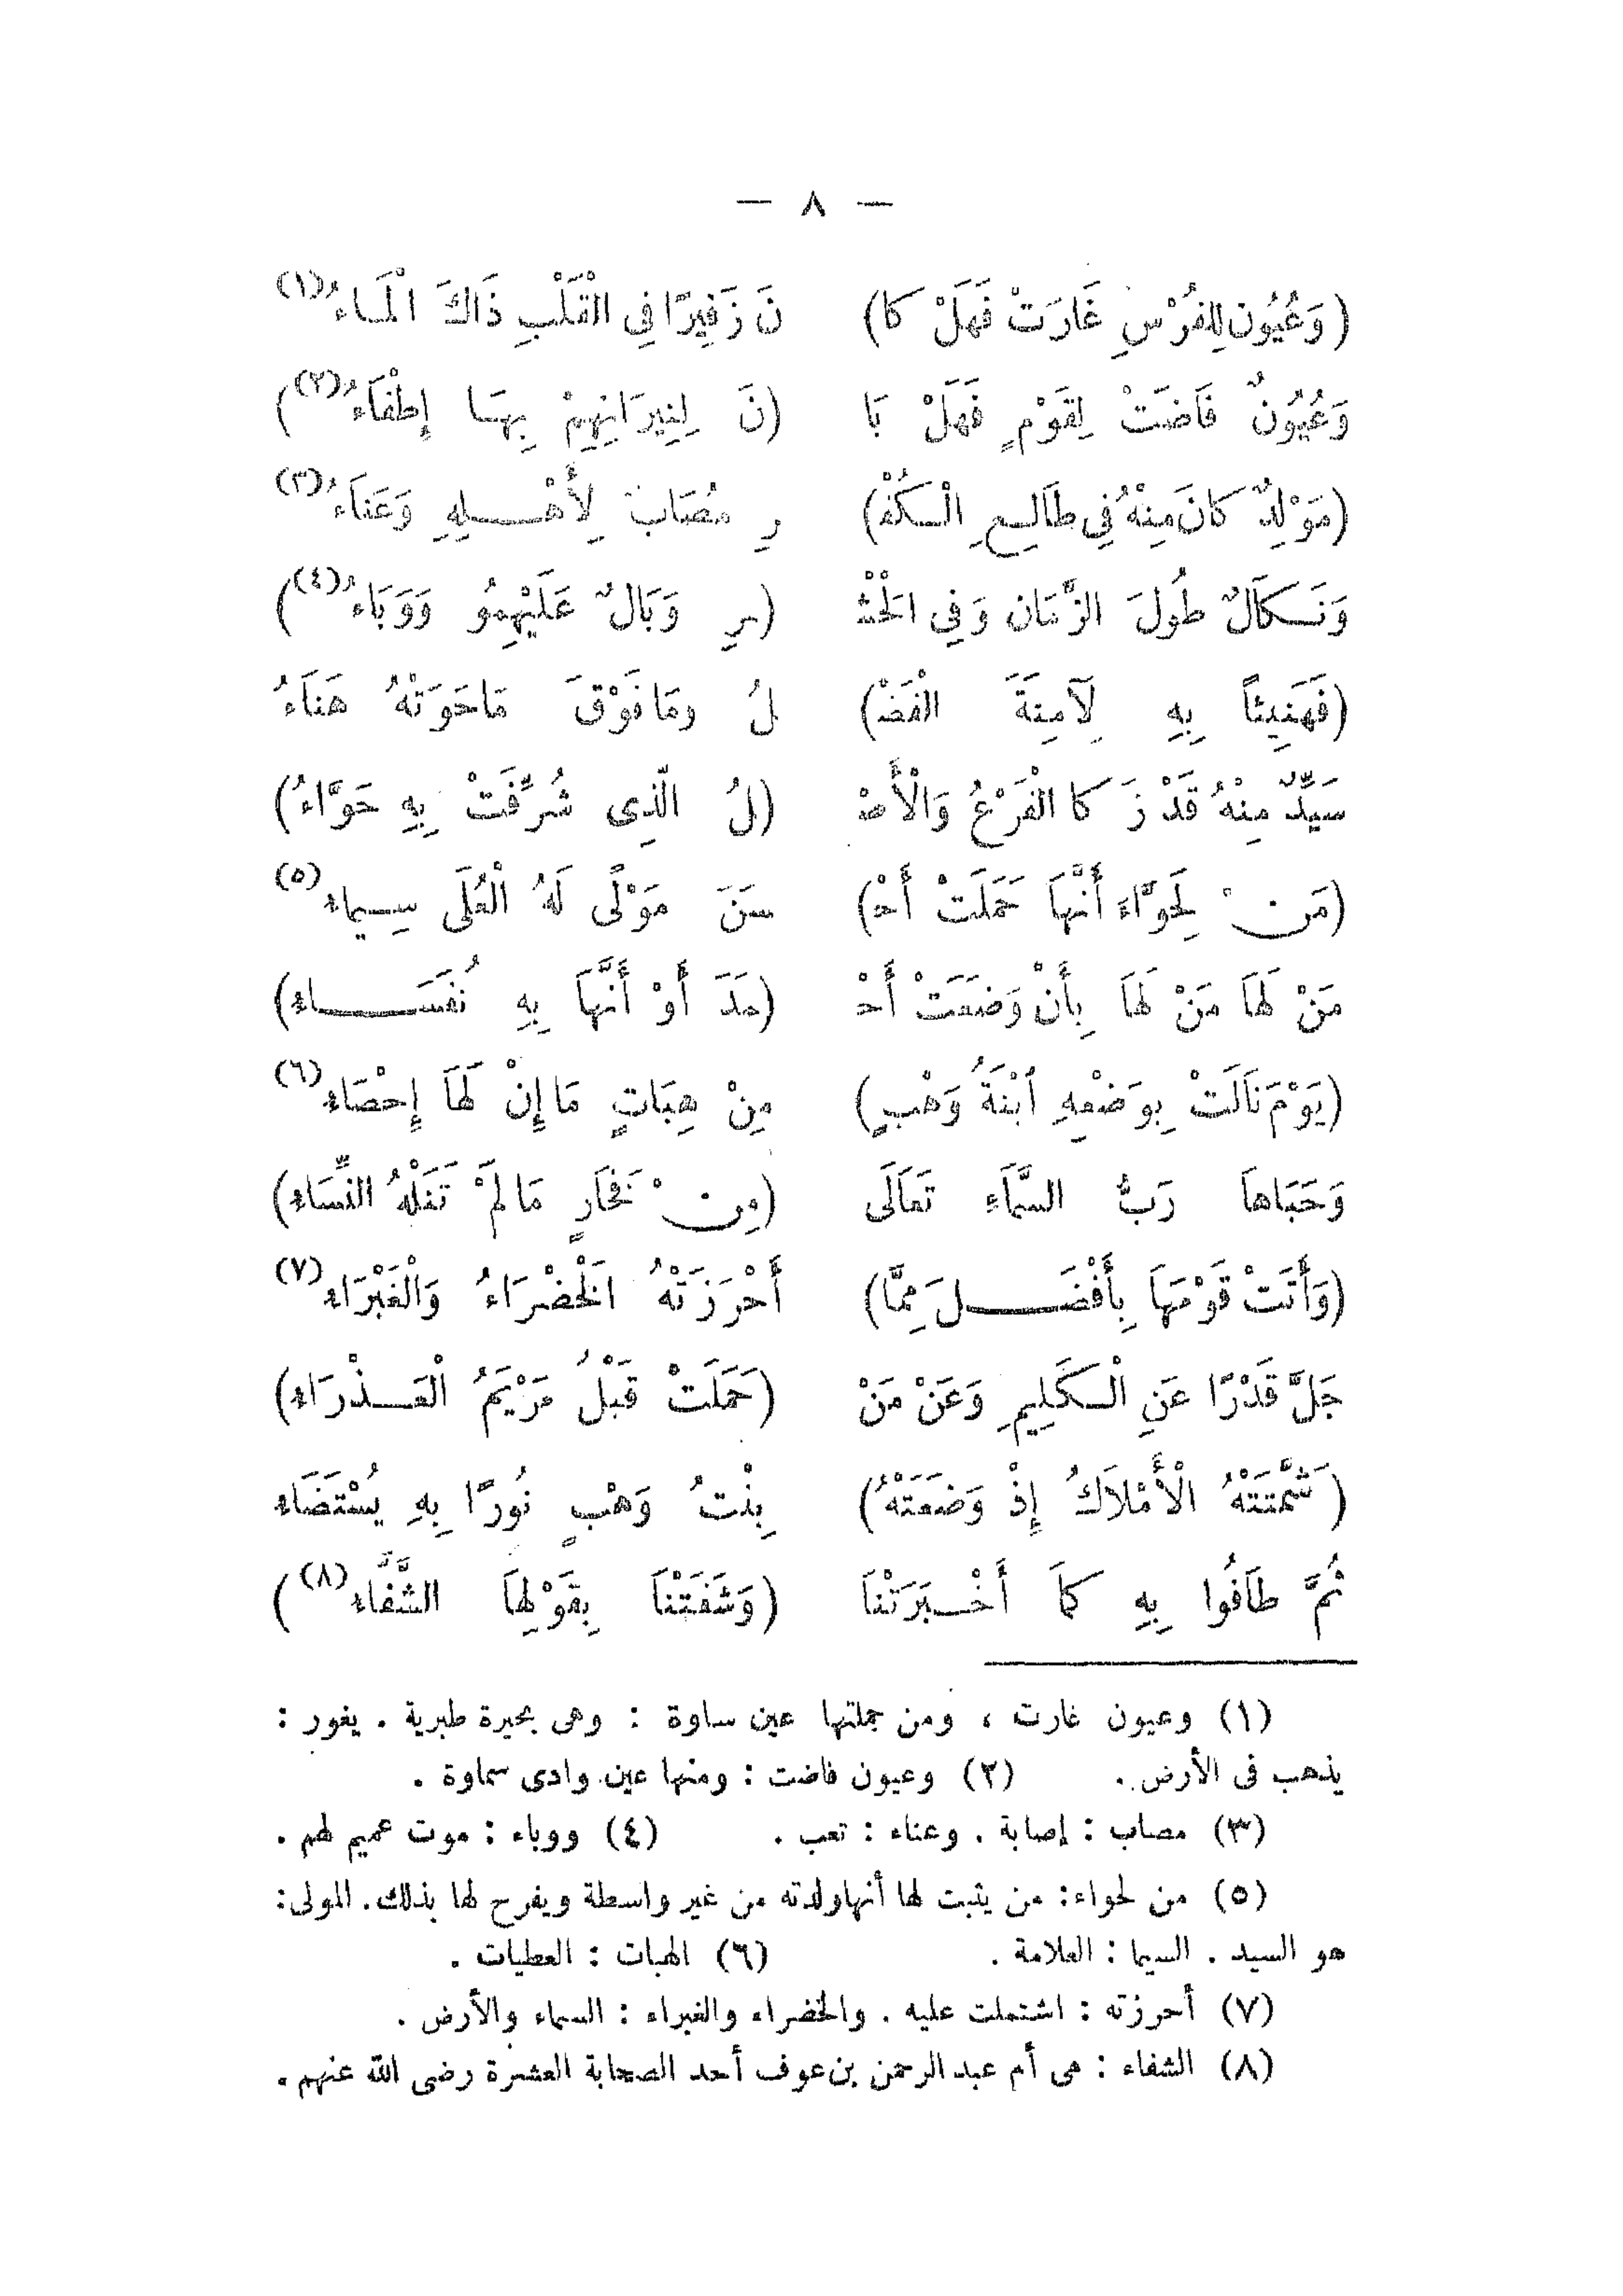 — ٨ —
(وَعُيُون لِلفُرْسِ غَارَتْ فَهَلْ كا) نَ زَفِيرًا فِى الْقَلْبِ ذَاكَ الْمَاءُ(١)
وَعُيُونٌ فَاضَتْ لِقَوْمٍ فَهَلْ بَا (نَ لِنِيرَانِهِمْ بِهَا إِطْفَاءُ(٢))
(مَوْلِدٌ كَانَ مِنْهُ فِي طَالِعِ الْكُفْ) رِ مُصَابٌ لِأَهْلِهِ وَعَنَاءُ(٣)
وَنَكَالٌ طُولَ الزَّمَانِ وَفِى الْحَشْ (رِ وَبَالٌ عَلَيْهِمُو وَوَبَاءُ(٤))
(فَهَنِيئاً بِهِ لِآمِنَةَ الْفَضْ) لُ ومَا فَوْقَ مَا حَوَتْهُ هَنَاءُ
سَيِّدٌ مِنْهُ قَدْ زَكا الْفَرْعُ وَالْأَصْ (لُ الَّذِى شُرِّفَتْ بِهِ حَوَّاءُ)
(مَن لِحَوَّاءَ أَنَّهَا حَمَلَتْ أَحْ) سَنَ مَوْلًى لَهُ الْعُلَى سِيماء(٥)
مَنْ لَهَا مَنْ لَهَا بِأَنْ وَضَعَتْ أَحْ (مَدَ أَوْ أَنَّهَا بِهِ نُفَسَاء)
(يَوْمَ نَالَتْ بِوَضْعِهِ ابْنَةُ وَهْبٍ) مِنْ هِبَاتٍ مَا إِنْ لَهَا إِحْصَاء(٦)
وَحَبَاها رَبُّ السَّمَاءِ تَعَالَى (مِن فَخَارٍ مَا لَمْ تَنَلْهُ النِّسَاء)
(وَأَتَتْ قَوْمَهَا بِأَفْضَلَ مِمَّا) أَحْرَزَتْهُ الْخَضْرَاءُ وَالْغَبْرَاء(٧)
جَلَّ قَدْرًا عَنِ الْكَلِيمِ وَعَنْ مَنْ (حَمَلَتْ قَبْلُ مَرْيَمُ الْعَذْرَاء)
(شَمَّتَتْهُ الْأَمْلَاكُ إِذْ وَضَعَتْهُ) بِنْتُ وَهْبٍ نُورًا بِهِ يُسْتَضَاء
ثُمَّ طَافُوا بِهِ كَمَا أَخْبَرَتْنَا (وَشَفَتْنَا بِقَوْلِهَا الشَّفَّاء(٨))
(١) وعيون غارت ، ومن جملتها عين ساوة : وهى بحيرة طبرية . يغور :
يذهب فى الأرض . (٢) وعيون فاضت : ومنها عين وادى سماوة .
(٣) مصاب : إصابة . وعناء : تعب . (٤) ووباء : موت عميم لهم .
(٥) من لحواء : من يثبت لها أنها ولدته من غير واسطة ويفرح لها بذلك . المولى :
هو السيد . السيما : العلامة . (٦) الهبات : العطيات .
(٧) أحرزته : اشتملت عليه . والخضراء والغبراء : السماء والأرض .
(٨) الشفاء : هى أم عبد الرحمن بن عوف أحد الصحابة العشرة رضى الله عنهم .